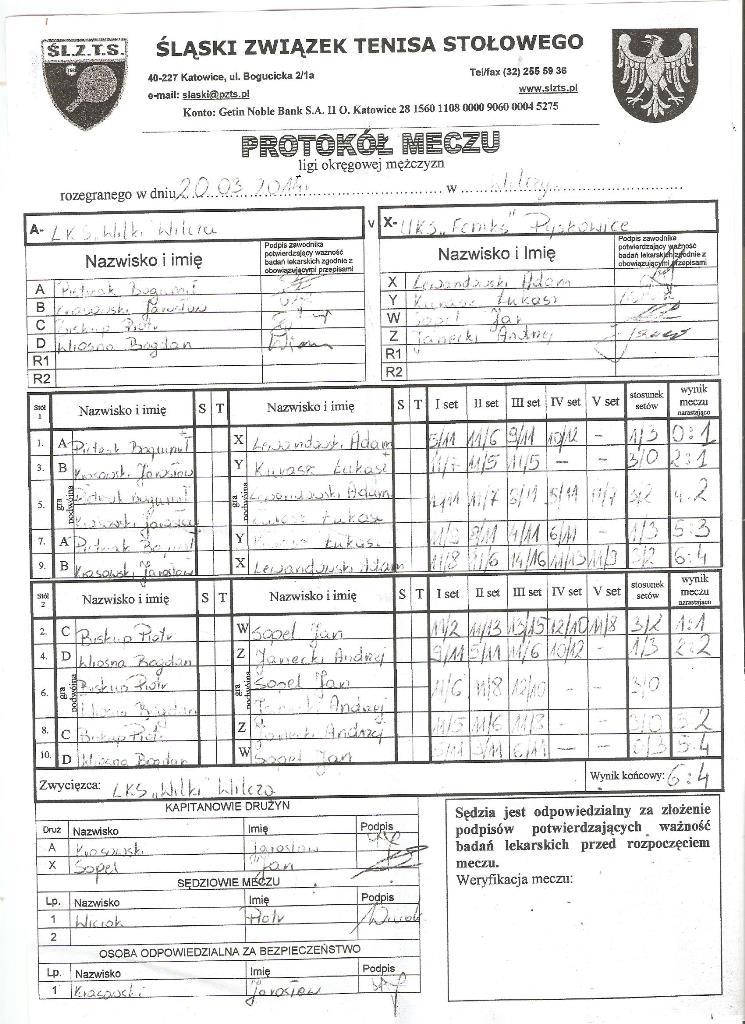 ŚL.Z.T.S.
ŚLĄSKI ZWIĄZEK TENISA STOŁOWEGO
40-227 Katowice, ul. Bogucicka 2/1a Tel/fax (32) 255 59 36
e-mail: slaski@pzts.pl www.slzts.pl
Konto: Getin Noble Bank S.A. II O. Katowice 28 1560 1108 0000 9060 0004 5275
PROTOKÓŁ MECZU
ligi okręgowej mężczyzn
rozegranego w dniu 20.03 w Wilczy
A- LKS „Wilki” Wilcza v X- UKS Pyskowice
Nazwisko i imię Podpis zawodnika potwierdzający ważność badań lekarskich zgodnie z obowiązującymi przepisami Nazwisko i Imię Podpis zawodnika potwierdzający ważność badań lekarskich zgodnie z obowiązującymi przepisami
A X Lewandowski Adam
B Krasowski Jarosław Y Łukasz
C Biskup Piotr W Sopel Jan
D Wiosna Bogdan Z Janecki Andrzej
R1 R1
R2 R2
Stół 1 Nazwisko i imię S T Nazwisko i imię S T I set II set III set IV set V set stosunek setów wynik meczu narastająco
1. A X Lewandowski Adam 5/11 11/6 9/11 10/12 - 1/3 0:1
3. B Krasowski Jarosław Y Łukasz 11/7 11/5 11/5 — — 3/0 2:1
5. gra podwójna gra podwójna Lewandowski Adam 11/7 5/11 5/11 11/7 3/2 4:2
Krasowski Jarosław Łukasz
7. A Y Łukasz 4/11 6/11 - 1/3 5:3
9. B Krasowski Jarosław X Lewandowski Adam 11/8 14/16 11/13 3/2 6:4
Stół 2 Nazwisko i imię S T Nazwisko i imię S T I set II set III set IV set V set stosunek setów wynik meczu narastająco
2. C Biskup Piotr W Sopel Jan 11/2 11/13 13/15 12/10 11/8 3/2 1:1
4. D Wiosna Bogdan Z Janecki Andrzej 9/11 5/11 11/6 10/12 - 1/3 2:2
6. gra podwójna Biskup Piotr gra podwójna Sopel Jan 11/6 11/8 12/10 - - 3/0
Wiosna Bogdan Janecki Andrzej
8. C Biskup Piotr Z Janecki Andrzej 11/5 11/6 11/3 - - 3/0 5:2
10. D Wiosna Bogdan W Sopel Jan 5/11 6/11 — — 0/3 5:4
Zwycięzca: LKS „Wilki” Wilcza Wynik końcowy: 6:4
KAPITANOWIE DRUŻYN
Druż Nazwisko Imię Podpis
A Krasowski Jarosław
X Sopel Jan
SĘDZIOWIE MECZU
Lp. Nazwisko Imię Podpis
1 Wiciok Piotr Wiciok
2
OSOBA ODPOWIEDZIALNA ZA BEZPIECZEŃSTWO
Lp. Nazwisko Imię Podpis
1 Krasowski Jarosław
Sędzia jest odpowiedzialny za złożenie
podpisów potwierdzających ważność
badań lekarskich przed rozpoczęciem
meczu.
Weryfikacja meczu: